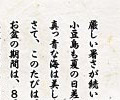 厳しい暑さが続い
小豆島も夏の日差
真っ青な海は美し
さて、このたびは
お盆の期間は、8